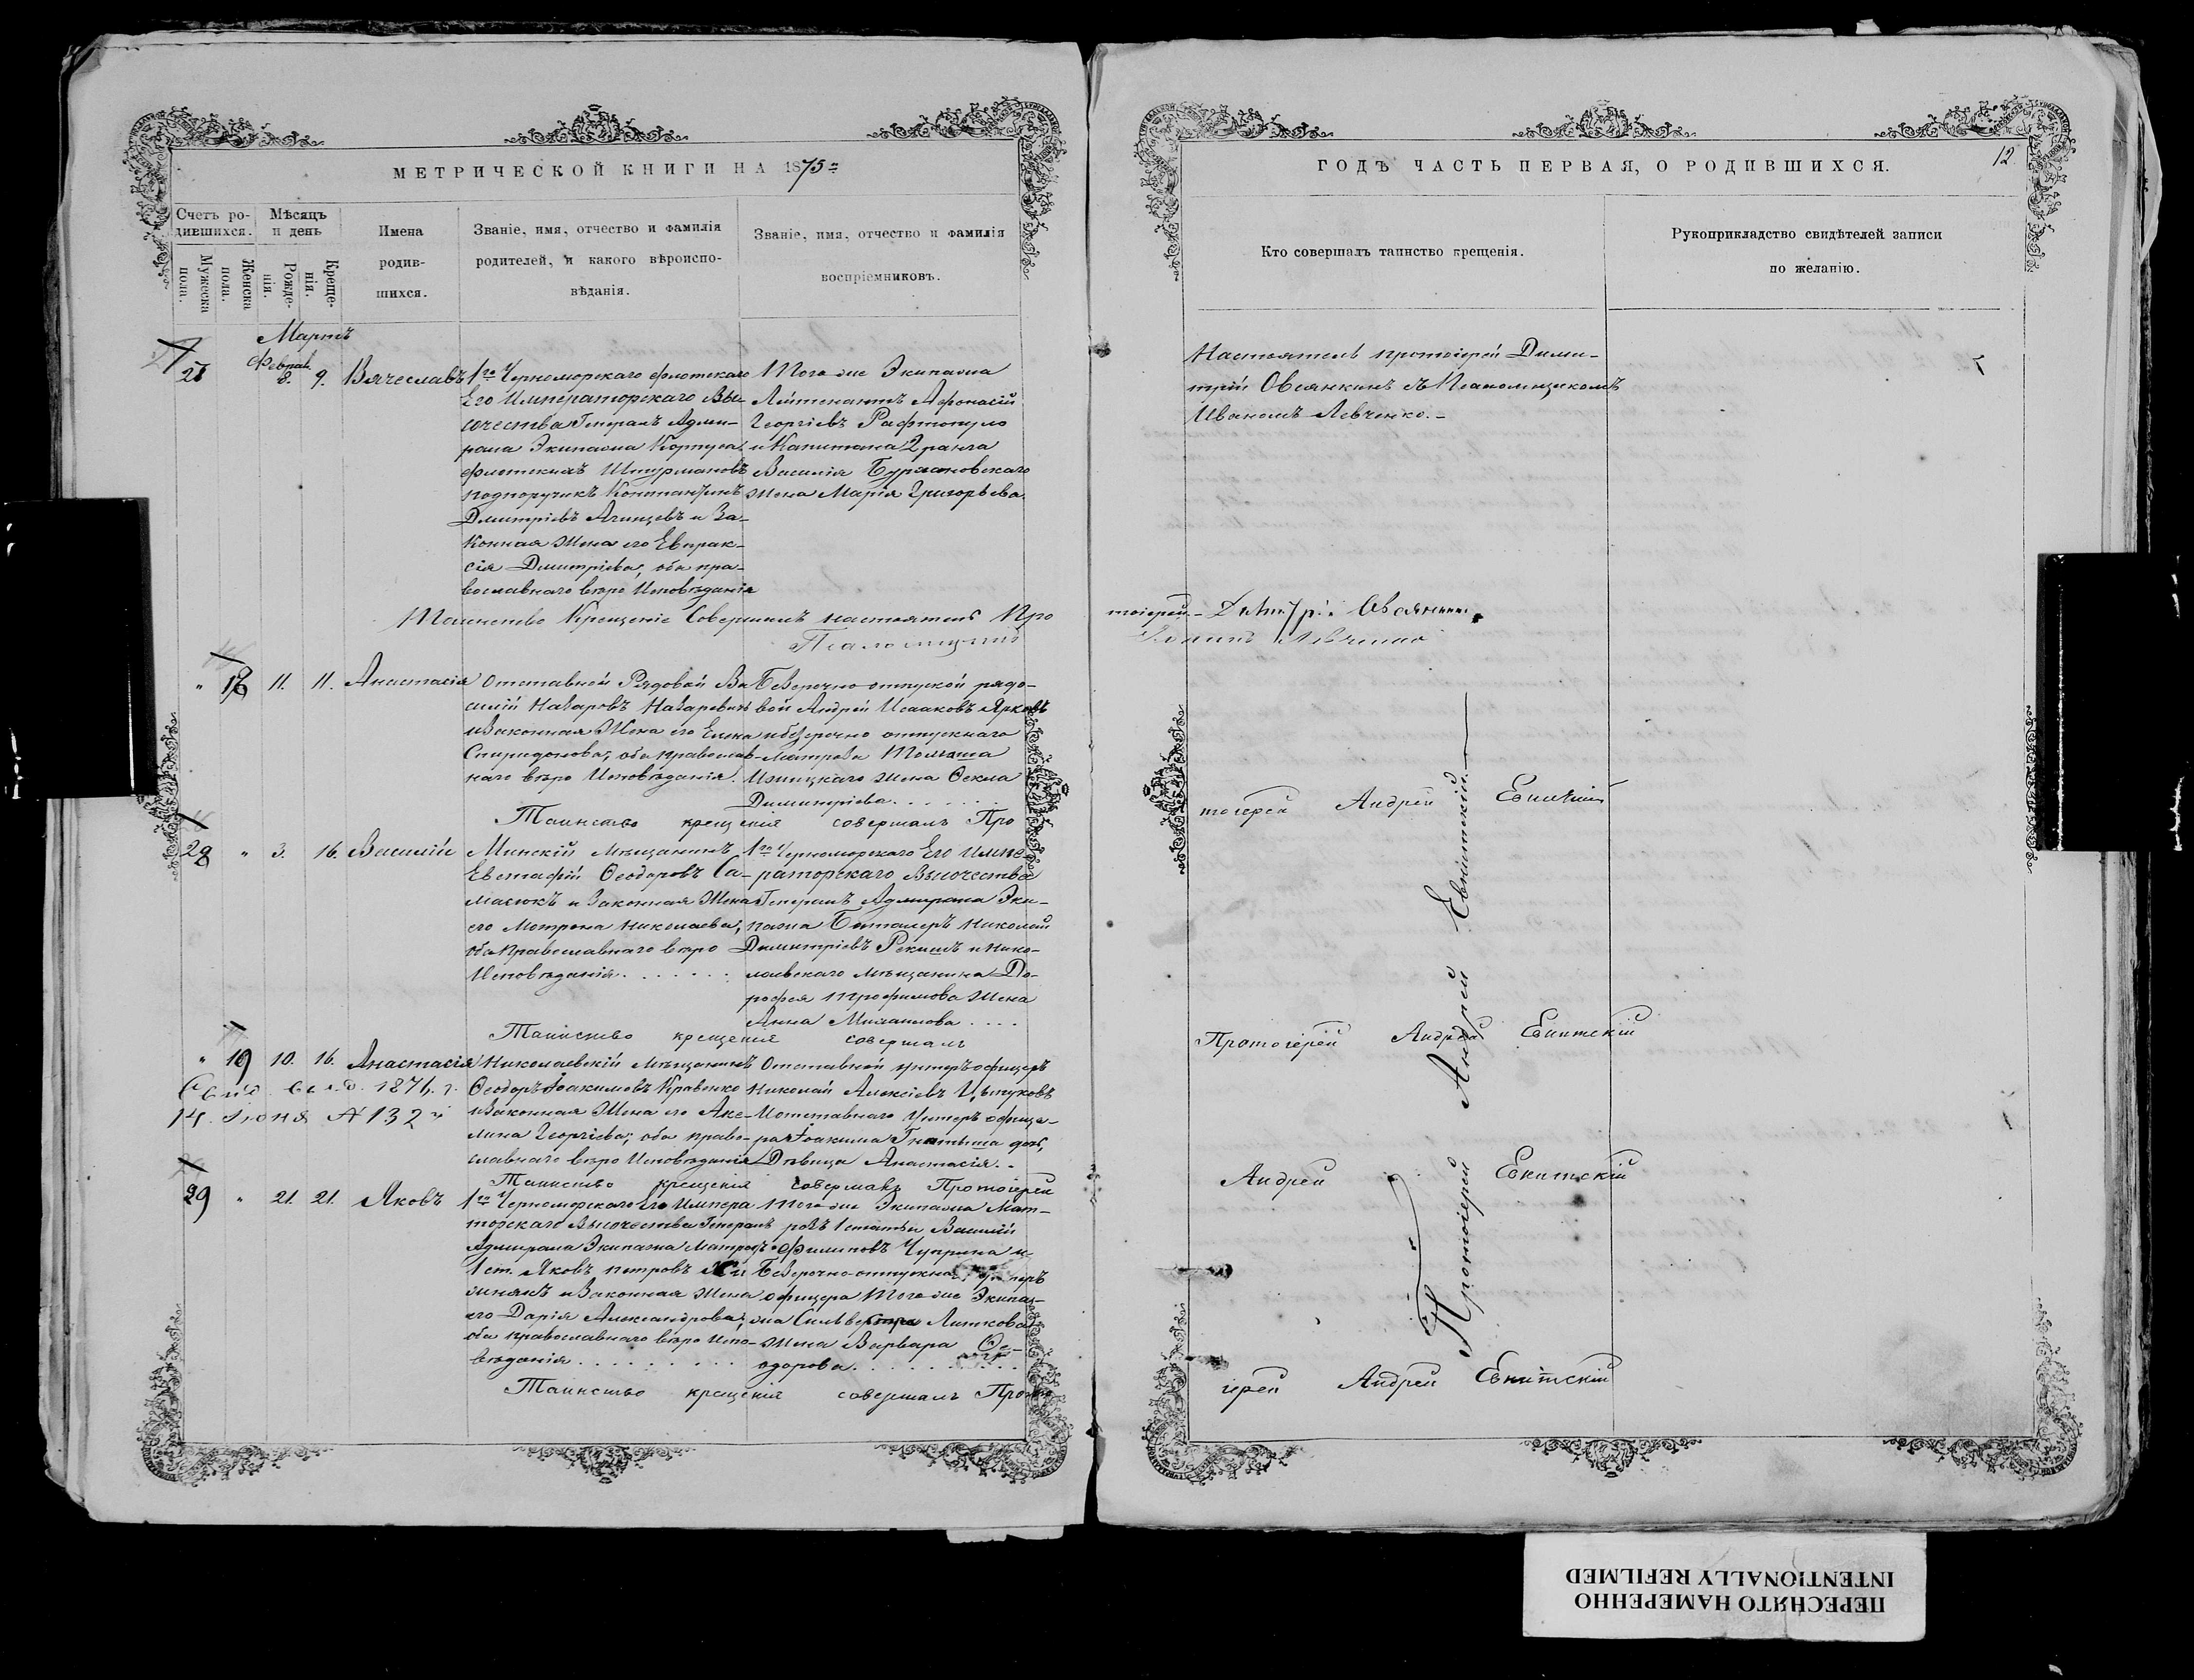 МЕТРИЧЕСКОЙ КНИГИ НА 1875=
Счетъ ро-
дившихся.
Мужеска
пола.
Женска
пола.
Мѣсяцъ
и день
Рожде-
нія.
Креще-
нія.
Имена
родив-
шихся.
Званіе, имя, отчество и фамилія
родителей, и какого вѣроиспо-
вѣданія.
Званіе, имя, отчество и фамилія
воспріемниковъ.
Мартъ
Феврал.
8. 9. Вячеславъ
1го Черноморскаго флотскаго
Его Императорскаго Вы-
сочества Генералъ Адми-
рала Экипажа Корпуса
флотскихъ Штурмановъ
подпоручикъ Константинъ
Дмитріевъ Агищевъ и За-
конная Жена его Евпрак-
сія Дмитріева, оба пра-
вославнаго вѣроисповѣданія
Того же Экипажа
Лейтенантъ Афонасій
Георгіевъ Рафтопуло
и Капитана 2 ранга
Василія
жена Марія Григорьева.
Таинство Крещеніе Совершилъ настоятель Про
Псаломщикъ
18 11. 11. Анастасія
Отставной Рядовой Ва
силій Назаровъ Назаревичъ
и Законная Жена его Елена
Спиридонова, оба православ-
наго вѣро Исповѣданія.
Безсрочно-отпускной рядо-
вой Андрей Исааковъ Ярковъ
и безсрочно отпускнаго
матроса
жена Ѳекла
Димитріева. . . . . .
Таинство крещенія совершалъ Про
28 " 3. 16. Василій
Минскій мѣщанинъ
Евстафій Ѳеодоровъ Са-
масюкъ и Законная Жена
его Мотрона Николаева,
оба Православнаго вѣро
Исповѣданія. . . . . .
1го Черноморскаго Его Импе-
раторскаго Высочества
Генералъ Адмирала Эки-
пажа Баталеръ Николай
Димитріевъ Рекишъ и Нико-
лаевскаго мѣщанина До-
рофея Трофимова жена
Анна Михаилова . . . .
Таинство крещенія совершалъ
" 19 10. 16. Анастасія
1871. г.
14. Июня № 132 й
Николаевскій мѣщанинъ
Ѳеодоръ Іоакимовъ Кравенко
и Законная Жена его Аке-
лина Георгіева, оба право-
славнаго вѣро Исповѣданія
Отставной унтеръ офицеръ
Николай Алексіевъ Цыпуковъ
И отставнаго Унтеръ офице-
ра Іоакима Гнатыша дочь,
Дѣвица Анастасія. -
Таинство крещенія совершалъ Протоіерей
29 " 21. 21. Яковъ
1го Черноморскаго Его Импера
торскаго Высочества Генералъ
Адмирала Экипажа Матросъ
1 ст. Яковъ Петровъ
и Законная Жена
его Дарія Александрова,
оба православнаго вѣро Испо-
вѣданія . . . . . . . . .
Того же Экипажа Мат-
росъ 1 статьи Василій
Филиповъ Чуприна и
Безсрочно-отпускнаго
офицера Того же Экипа-
жа Сильвестра Липкова
жена Варвара Ѳе-
одорова. . . . . . . . .
Таинство крещенія совершалъ Прото
ГОДЪ ЧАСТЬ ПЕРВАЯ, О РОДИВШИХСЯ.
12
Кто совершалъ таинство крещенія.
Рукоприкладство свидѣтелей записи
по желанію.
Настоятель протоіерей Дими-
трій Овсянкинъ съ Псаломщикомъ
Иваномъ Левченко. -
тоіерей - Димитрій Овсянкинъ
Іоаннъ Левченко
тоіерей Андрей Евнитскій
Протоіерей Андрей Евнитскій
Андрей Евнитскій
іерей Андрей Евнитскій
Протоіерей Андрей Евнитскій.
ПЕРЕСНЯТО НАМЕРЕННО
INTENTIONALLY REFILMED